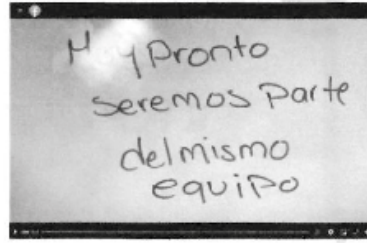 M y Pronto
seremos Parte
del mismo
equipo